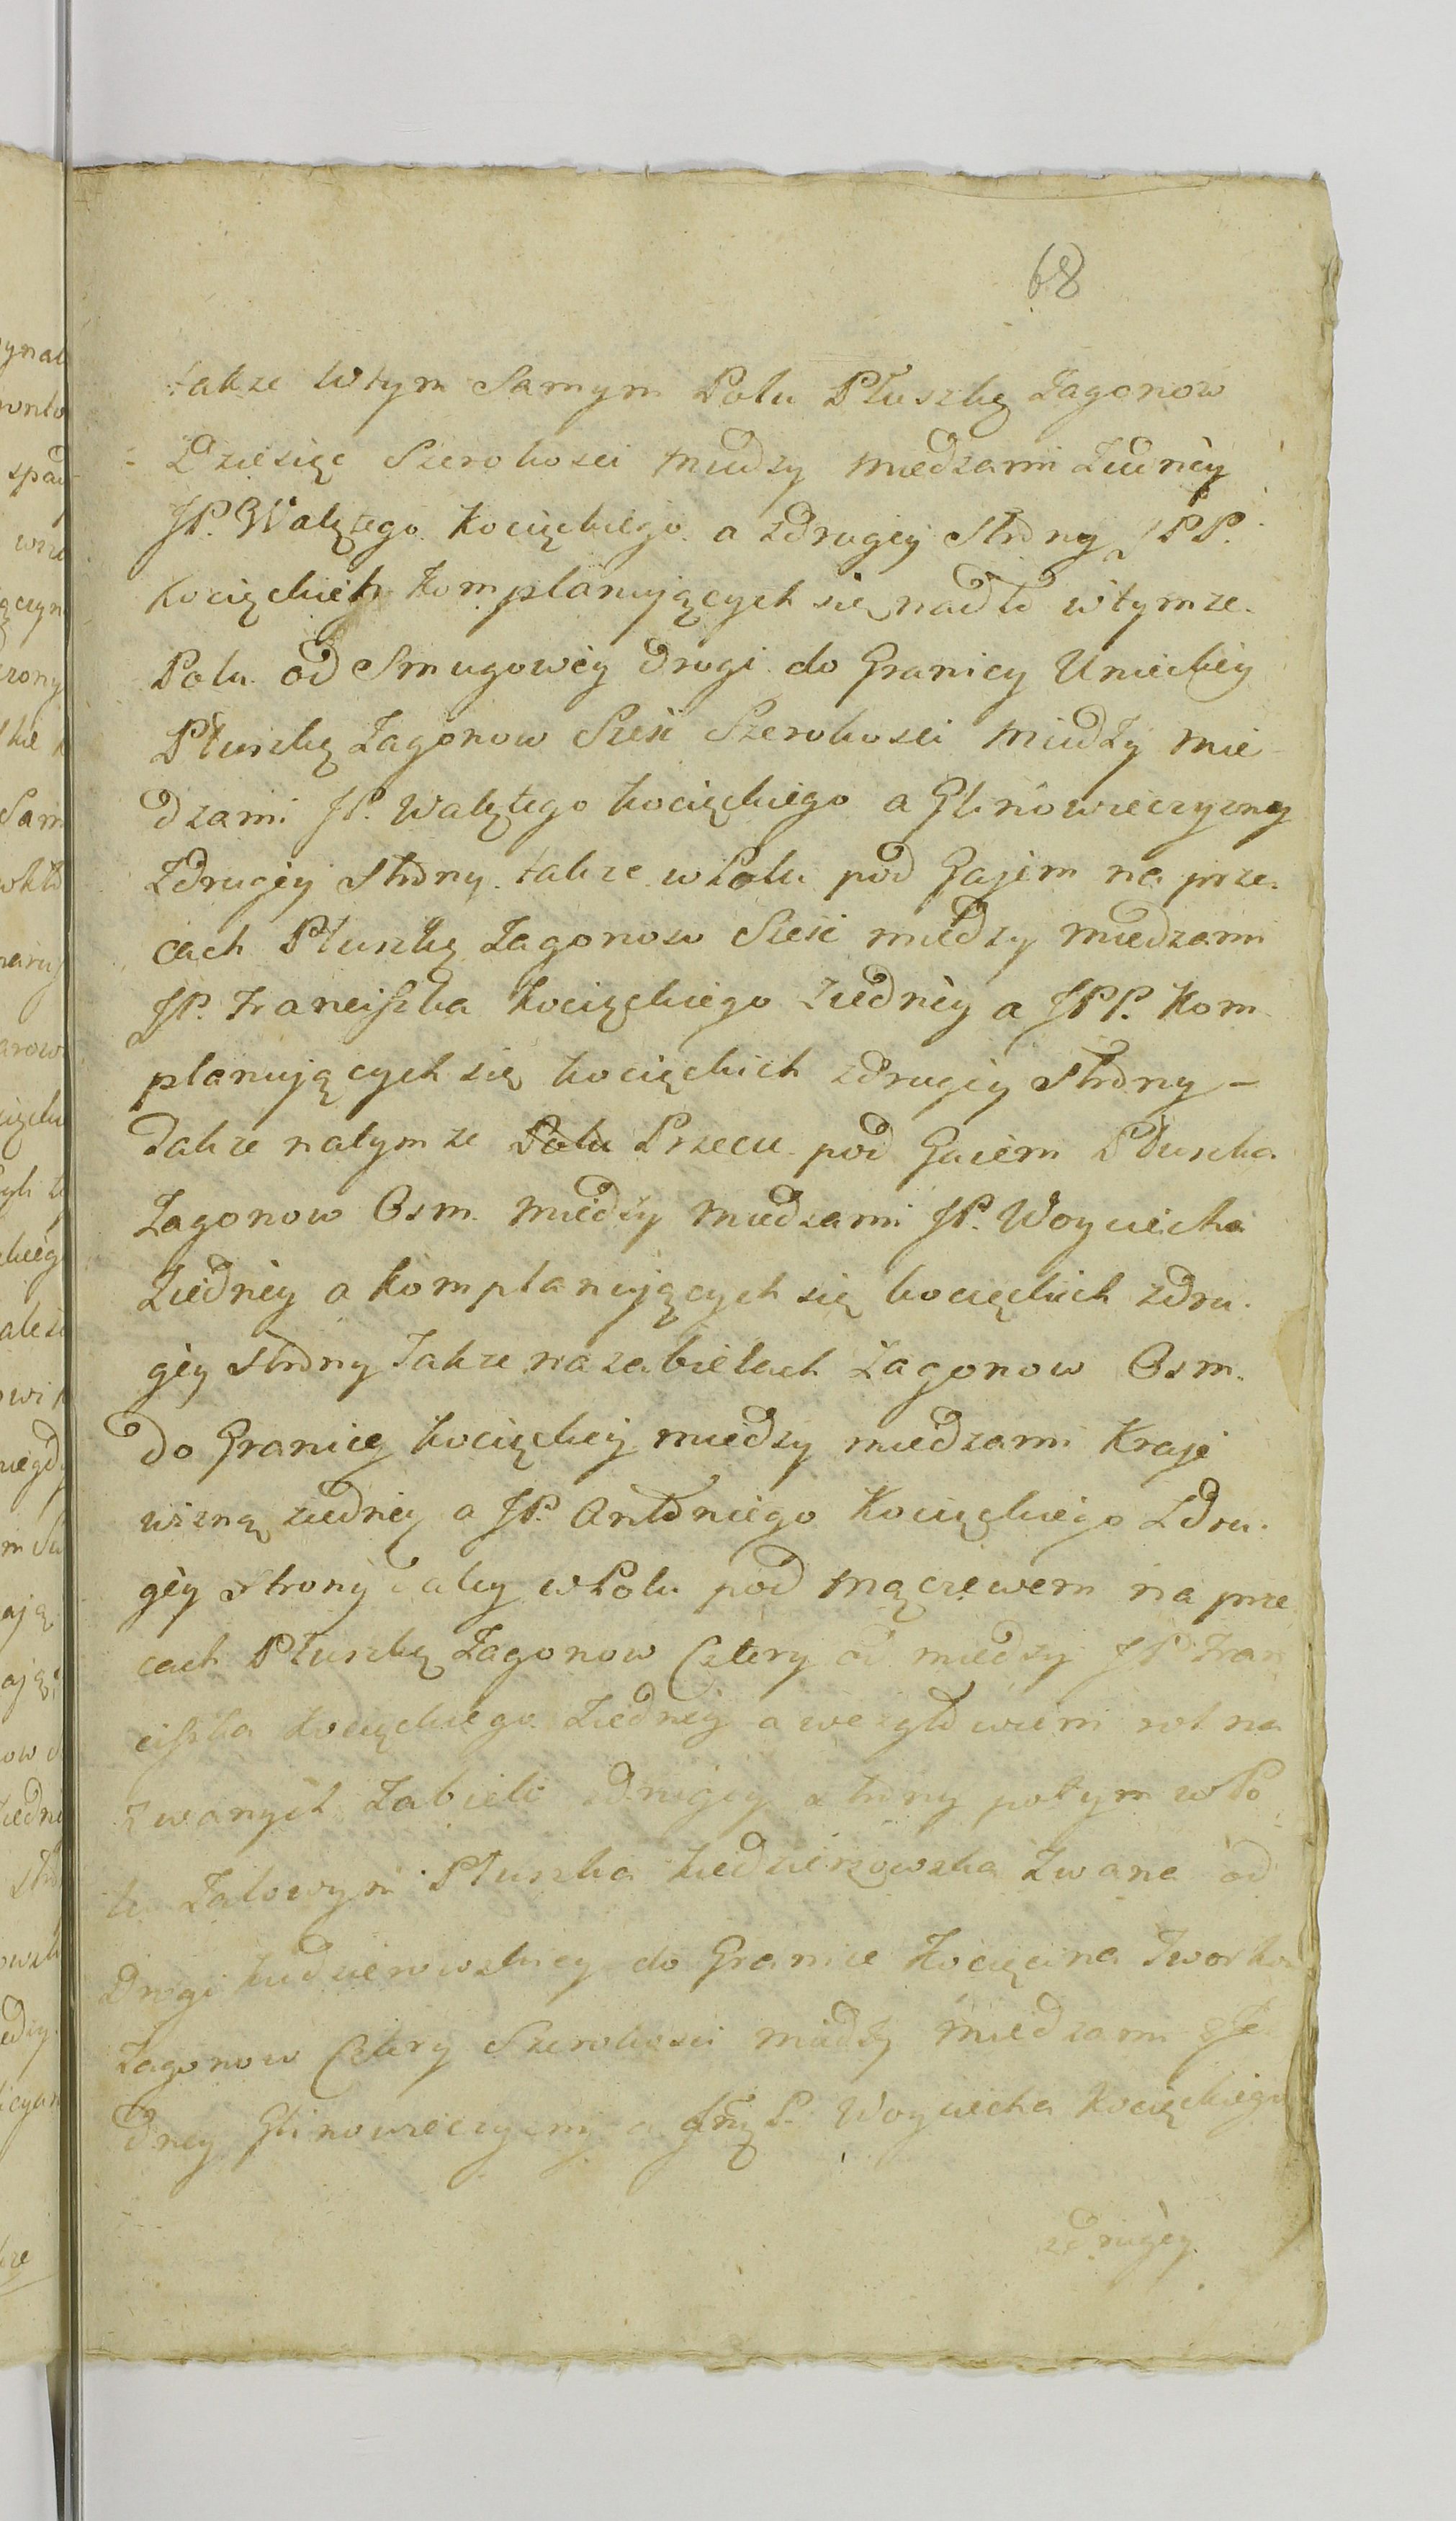 68
także w tym Samym Polu Płuszkę Zagonow
Dziesięc Szerokosci między miedzami Ziednéy
JP. Walętego Kocięckiego a zdrugiey Strony JPP.
Kocięckich komplanujących się nadto w tymze
Polu od Smugowéy drogi do Granicy Unieckiey
Płuszkę Zagonow Sześć Szerokosci między mie
dzami JP. Walętego Kocięckiego a Glinowiecczyzny
Zdrugiéy strony także w Polu pod Gajem na prze
cach Płuszkę Zagonow Sześć między miedzami
JP. Franciszka Kocięckiego ziednéy a JPP. Kom
planujących się Kocięckich zdrugiey strony –
Także natymze Przecu pod Gaiem Płuszka
Zagonow Osm między miedzami JP. Woyciecha
Ziednéy a komplanujących się Kocięckich zdru
giéy strony Także na zabielach Zagonow Osm
do Granicy Kocięckiéy między miedzami Kraje
wizną ziednéy a JP. Antoniego Kocięckiego Zdru
giéy strony daley w Polu pod Mączewem na prze
cach Płuszkę Zagonow Cztery od miedzy JP. Fran
ciszka Kocięckiego Ziednéy a wezgłowiem rol na
zwanych Zabiele zdrugiéy strony potym w Po
lu Zalowym Płuszka Kiedzierzowska Zwana od
Drogi Kiedzierowskiey do Granice Kocięcina Tworkow
Zagonow Cztery Szerokosci między miedzami zJe
dnéy Glinowiecczyzny a P. Woyciecha Kocięckiego
zdrugiéy